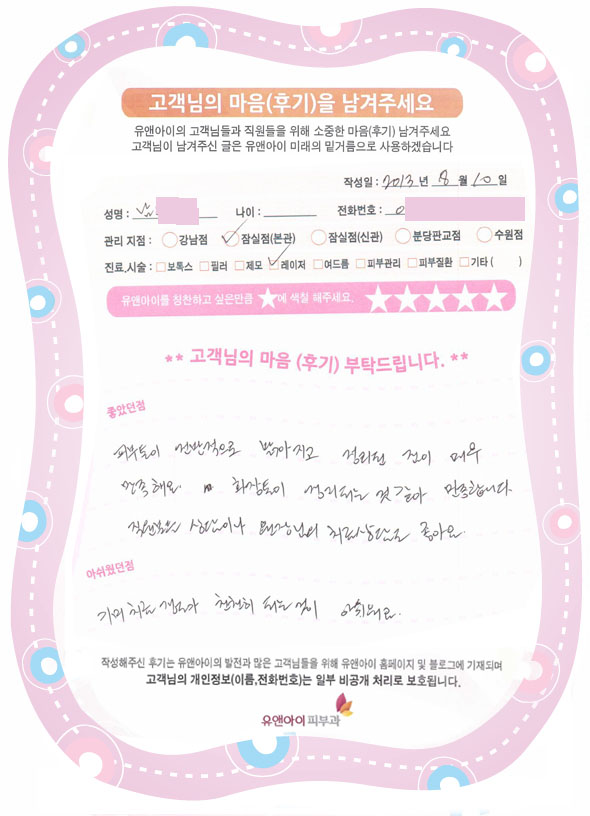 고객님의 마음(후기)을 남겨주세요
유앤아이의 고객님들과 직원들을 위해 소중한 마음(후기) 남겨주세요
고객님이 남겨주신 글은 유앤아이 미래의 밑거름으로 사용하겠습니다
작성일 : 2013 년 8 월 10 일
성명 : 나이 : 전화번호 : 0
관리 지점 : 강남점 잠실점(본관) 잠실점(신관) 분당판교점 수원점
진료,시술 : 보톡스 필러 제모 레이저 여드름 피부관리 피부질환 기타 ( )
유앤아이를 칭찬하고 싶은만큼 ★에 색칠 해주세요.
** 고객님의 마음 (후기) 부탁드립니다. **
좋았던점
피부톤이 전반적으로 밝아지고 정리된 점이 매우
만족해요. 화장톤이 정리되는 것 같아 만족합니다
직원분들 상담이나 원장님의 치료상담도 좋아요.
아쉬웠던점
기미 치료 정도가 천천히 되는 점이 아쉬워요.
작성해주신 후기는 유앤아이의 발전과 많은 고객님들을 위해 유앤아이 홈페이지 및 블로그에 기재되며
고객님의 개인정보(이름,전화번호)는 일부 비공개 처리로 보호됩니다.
유앤아이피부과